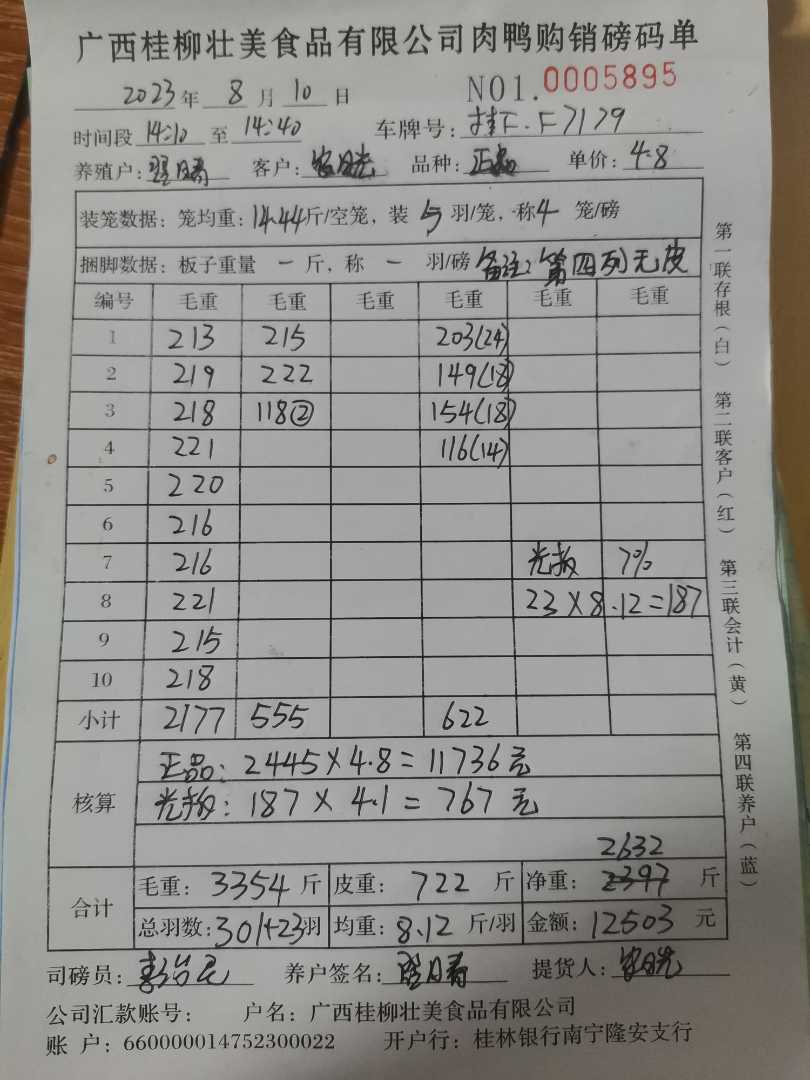 广西桂柳壮美食品有限公司肉鸭购销磅码单
2023年 8 月 10 日 NO1.0005895
时间段 14:10 至 14:40 车牌号: 桂F·F7179
养殖户: 客户: 品种: 正品 单价: 4.8
装笼数据: 笼均重: 14.44斤/空笼, 装 5 羽/笼, 称4 笼/磅
捆脚数据: 板子重量 一 斤, 称 一 羽/磅 备注: 第四列无皮
编号 毛重 毛重 毛重 毛重 毛重 毛重
1 213 215 203(24)
2 219 222 149(18)
3 218 118② 154(18)
4 221 116(14)
5 220
6 216
7 216 光板 7%
8 221 23×8.12=187
9 215
10 218
小计 2177 555 622
核算
正品: 2445×4.8=11736元
光板: 187×4.1=767元
2632
合计
毛重: 3354 斤 皮重: 722 斤 净重: 2397 斤
总羽数: 301+23羽 均重: 8.12 斤/羽 金额: 12503 元
司磅员: 养户签名: 提货人:
公司汇款账号: 户名: 广西桂柳壮美食品有限公司
账 户: 660000014752300022 开户行: 桂林银行南宁隆安支行
第一联存根(白) 第二联客户(红) 第三联会计(黄) 第四联养户(蓝)